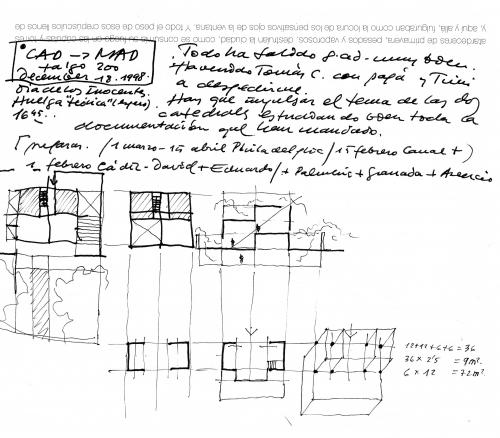 atardeceres de primavera, pesados y vaporosos, destruían la ciudad, como se consume su fuego
y, aquí y allá, fulguraban como la locura de los pensativos ojos de la ventana. Y todo el peso de esos crepúsculos llenos de
CAD → MAD
talgo 200
December 18. 1998.
Dia de los Inocentes.
Huelga técnica
1645..
. Todo ha salido g.ad. muy bien.
Ha venido Tomás C. con papá y Tini
a despedirme.
. Hay que impulsar el tema de las dos
catedrales estudiando bien toda la
documentación que han mandado.
preparar. /1 marzo - 15 abril Philadelphia / 15 febrero Canal +)
1 febrero Cádiz - David + Eduardo / + Palmeiis + Granada + Asencio
12+12+6+6 = 36
36 x 2'5 = 9m².
6 x 12 = 72m².